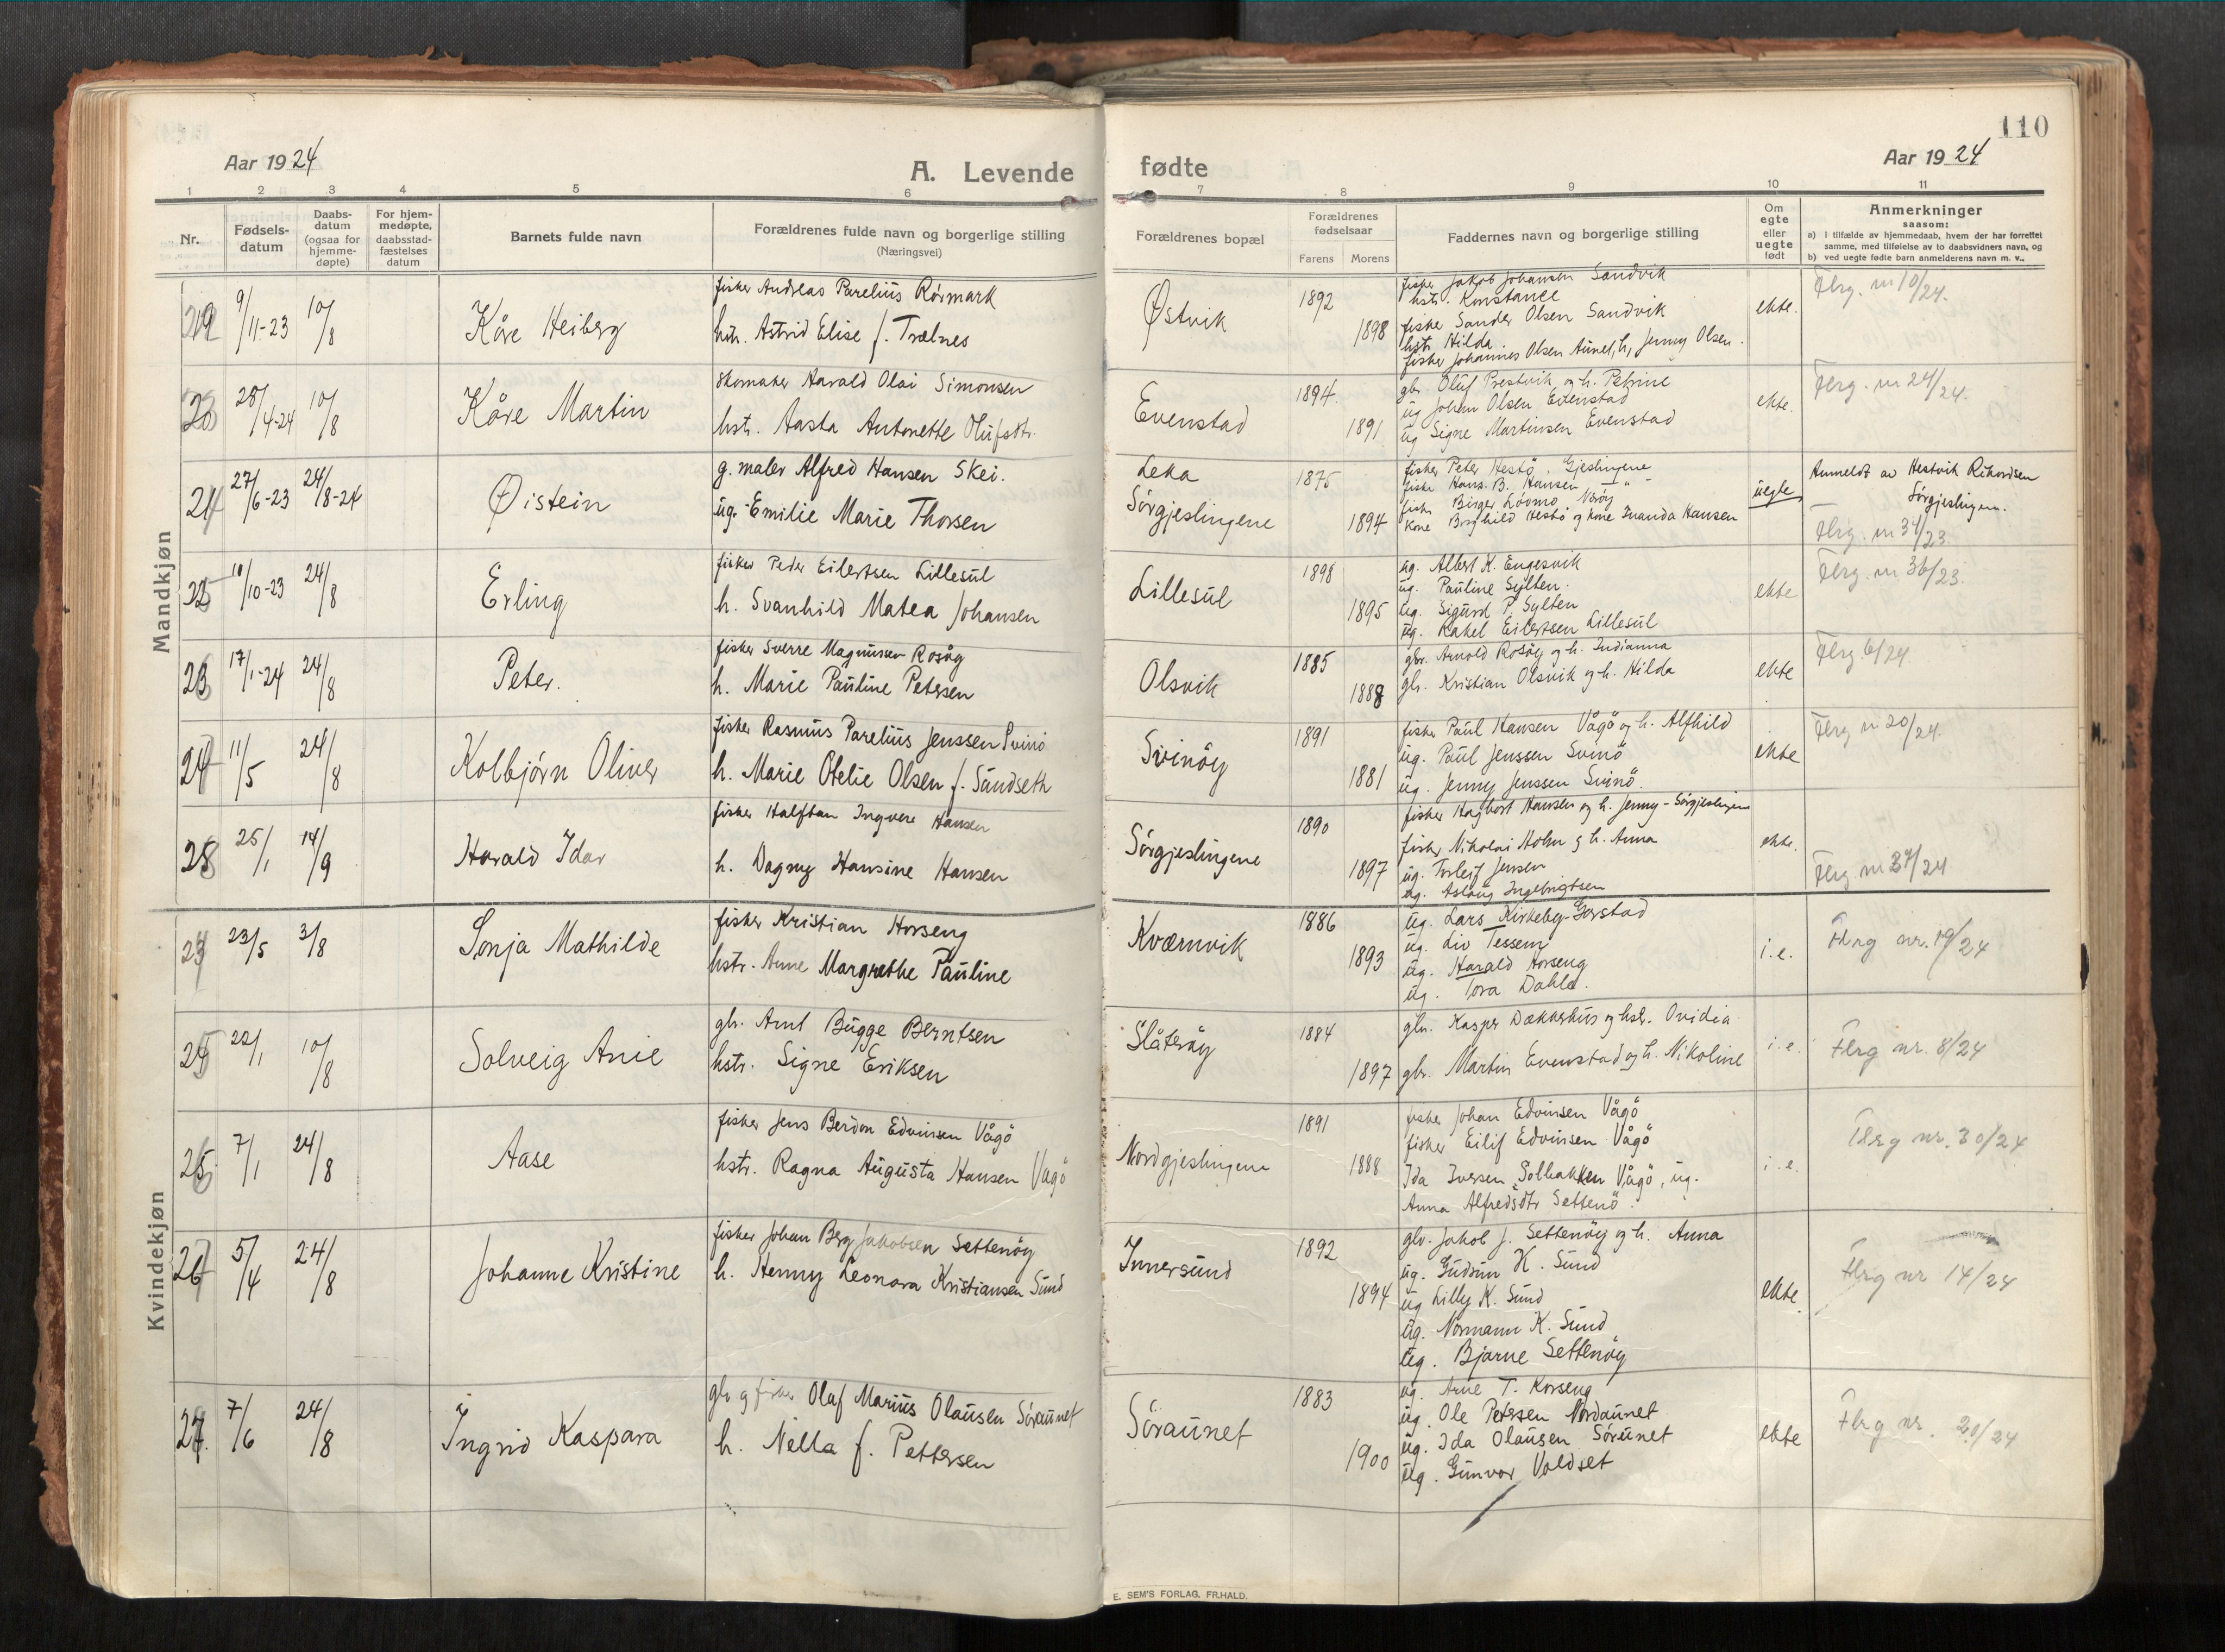 110
Aar 1924
A. Levende
fødte
Aar 1924
1 2 3 4 5 6 7 8 9 10 11
Nr.
Fødsels-datum
Daabs-datum (ogsaa for hjemme-døpte)
For hjem-medøpte, daabsstad-fæstelses datum
Barnets fulde navn
Forældrenes fulde navn og borgerlige stilling
(Næringsvei)
Forældrenes bopæl
Forældrenes fødselsaar
Farens Morens
Faddernes navn og borgerlige stilling
Om egte eller uegte født
Anmerkninger
saasom:
a) i tilfælde av hjemmedaab, hvem der har forrettet samme, med tilføielse av to daabsvidners navn, og
b) ved uegte fødte barn anmelderens navn m. v.,
Mandkjøn
19 9/11-23 10/8 Kåre Heiberg
fisker Andreas Parelius Rørmark
hstr. Astrid Elise f. Trælnes
Østvik 1892 1898
fisker Jakob Johansen Sandvik
hstr. Konstance
fisker Sander Olsen Sandvik
hstr. Hilda.
fisker Johannes Olsen Aunet, h, Jenny Olsen.
ekte.
Flrg. nr 10/24.
20 28/4-24 10/8 Kåre Martin
skomaker Harald Olai Simonsen
hstr. Aasta Antonette Olufsdtr.
Evenstad 1894 1891
gbr. Oluf Prestvik og h. Petrine
ug Johan Olsen Evenstad
ug Signe Martinsen Evenstad
ekte.
Flrg. nr 24/24.
21 27/6-23 24/8-24 Øistein
g. maler Alfred Hansen Skei.
ug. Emilie Marie Thorsen
Leka
Sørgjeslingene 1875 1894
fisker Peter Hestö. Gjeslingene
fisker Hans B. Hansen — " —
fisker Birger Løvmo Nærøy
kone Borghild Hestö og kone Inanda Hansen
uegte
Anmeldt av Hestvik Rikardsen
Sørgjeslingen.
Flrg. nr 34/23.
22 10/10-23 24/8 Erling
fisker Peder Eilertsen Lillesul
h. Svanhild Matea Johansen
Lillesul 1898 1895
ug. Albert K. Engesvik
ug. Pauline Sylten.
ug. Sigurd P. Sylten
ug. Rakel Eilertsen Lillesul
ekte
Flrg. nr 36/23.
23 17/1-24 24/8 Peter.
fisker Sverre Magnussen Rosøy
h. Marie Pauline Petersen
Olsvik 1885 1888
gbr. Arnold Rosøy og h. Indianna
gbr. Kristian Olsvik og h. Hilda
ekte
Flrg. 6/24.
24 11/5 24/8 Kolbjørn Oliver
fisker Rasmus Parelius Jenssen Svinö
h. Marie Otelie Olsen f. Sundseth
Svinöy 1891 1881
fisker Paul Hansen Vågö og h. Alfhild
ug. Paul Jenssen Svinö
ug. Jenny Jenssen Svinö.
ekte
Flrg nr 20/24.
25 25/1 14/9 Harald Idar
fisker Halfdan Ingvere Hansen
h. Dagny Hansine Hansen
Sørgjeslingene 1890 1897
fisker Hagbart Hansen og h. Jenny - Sørgjeslingene
fisker Nikolai Holm og h. Anna
ug. Torleif Jensen
ug. Aslaug Ingebrigtsen
ekte.
Flrg nr 37/24
Kvindekjøn
23 23/5 3/8 Sonja Mathilde
fisker Kristian Horseng
hstr. Anne Margrethe Pauline
Kværnvik 1886 1893
ug. Lars Kirkeby-Garstad
ug. Liv Tessem
ug. Harald Horseng
ug. Tora Dahle.
i.e.
Flrg nr. 19/24
24 22/1 10/8 Solveig Anie
gbr. Arnt Bugge Berntsen
hstr. Signe Eriksen
Slåtøy 1884 1897
gbr. Kasper Dækkerhus og hstr. Ovidia
gbr. Martin Evenstad og h. Nikoline
i.e.
Flrg nr. 8/24
25 7/1 24/8 Aase
fisker Jens Berdon Edvinsen Vågö
hstr. Ragna Augusta Hansen Vågö
Nordgjeslingene 1891 1888
fisker Johan Edvinsen Vågö
fisker Eilif Edvinsen Vågö
Ida Iversen Solbakken Vågö, ug.
Anna Alfredsdtr Settenö.
i.e.
Flrg nr. 30/24
26 5/4 24/8 Johanne Kristine
fisker Johan Berg Jakobsen Settenöy
h. Henny Leonora Kristiansen Sund
Innersund 1892 1894
gbr. Jakob J. Settenöy og h. Anna
ug. Gudrun K. Sund
ug Lilly K. Sund
ug. Normann K. Sund
ug. Bjarne Settenöy
ekte.
Flrg nr 14/24
27. 7/6 24/8 Ingrid Kaspara
gbr og fisker Olaf Marius Olausen Söraunet
h. Nella f. Pettersen
Söraunet 1883 1900
ug. Arne T. Horseng
ug. Ole Petersen Nordaunet
ug. Ida Olausen Söraunet
ug. Gunvor Voldset
ekte
Flrg nr. 20/24
E. SEM'S FORLAG, FR.HALD.